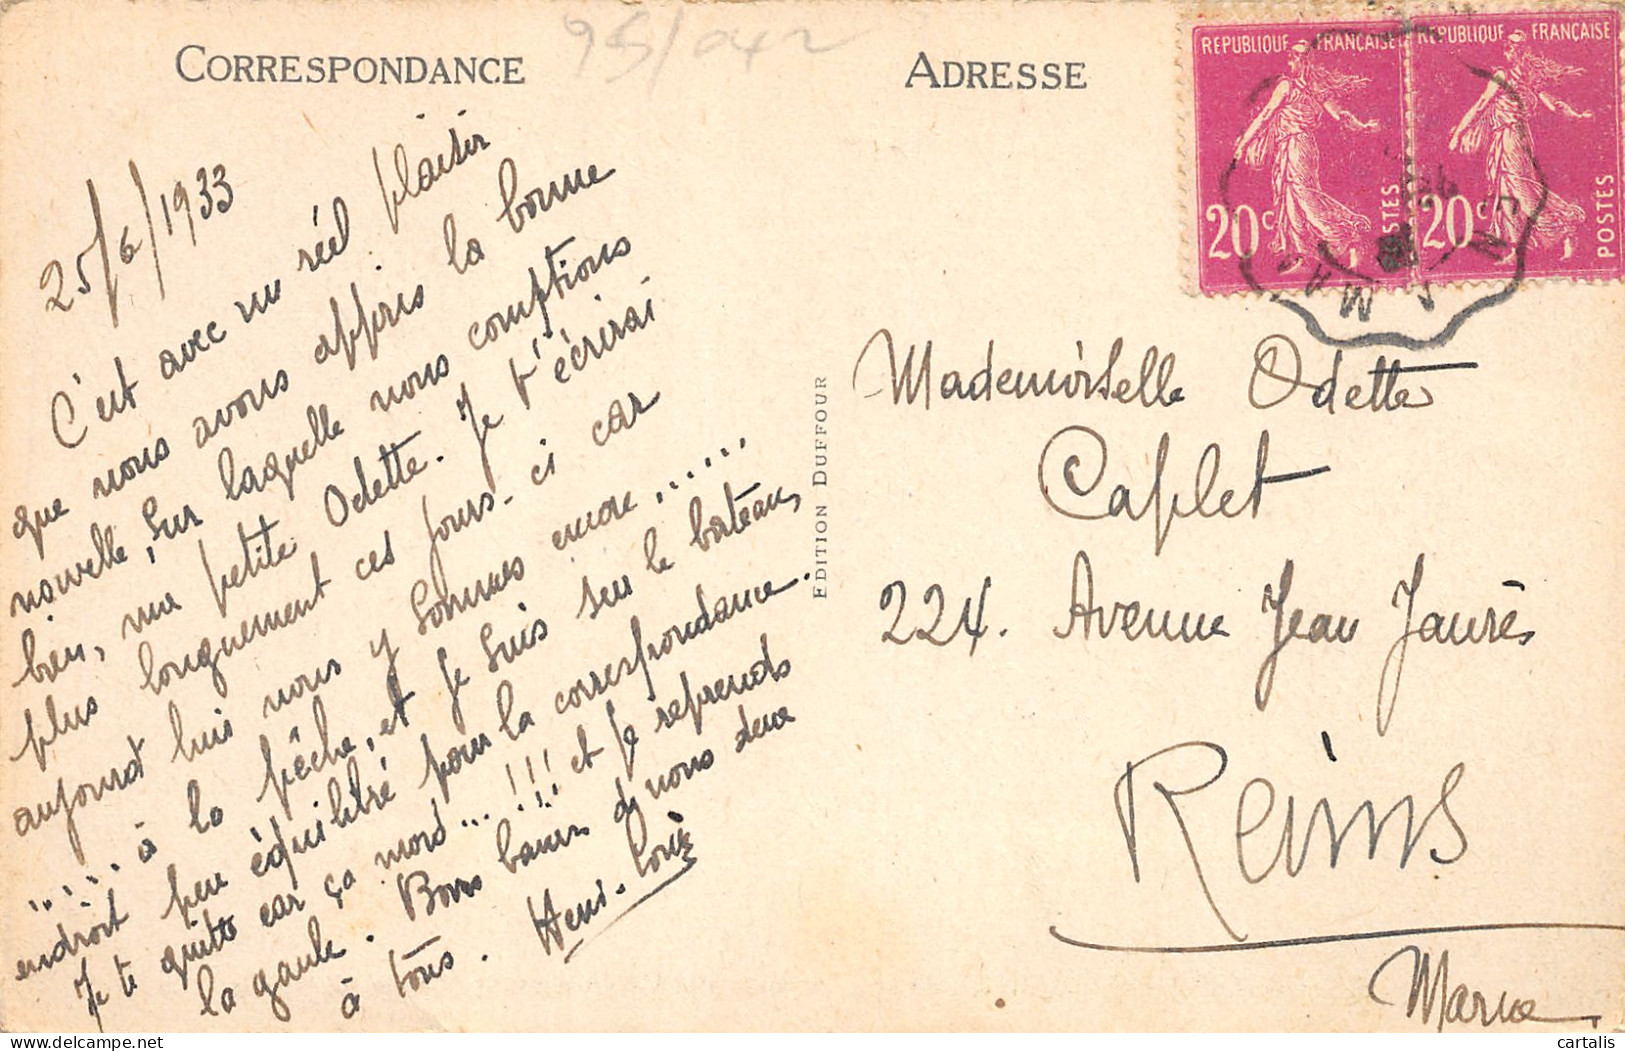 95/042
CORRESPONDANCE
25/6/1933
C'est avec un réel plaisir
que nous avons appris la bonne
nouvelle, sur laquelle nous comptions
bien, ma petite Odette. Je t'écrirai
plus longuement ces jours-ci car
aujourd'hui nous y sommes encore ......
...... à la pêche, et je suis sur le bateau,
endroit peu équilibré pour la correspondance.
Je te quitte car ça mord... !!! et je reprends
la gaule. Bons baisers de nous deux
à tous. Henri-
EDITION DUFFOUR
ADRESSE
REPUBLIQUE FRANÇAISE
20c
POSTES
REPUBLIQUE FRANÇAISE
20c
POSTES
Mademoiselle Odette
Caplet
224. Avenue Jean Jaurès
Reims
Marne.
cartalis
delcampe.net